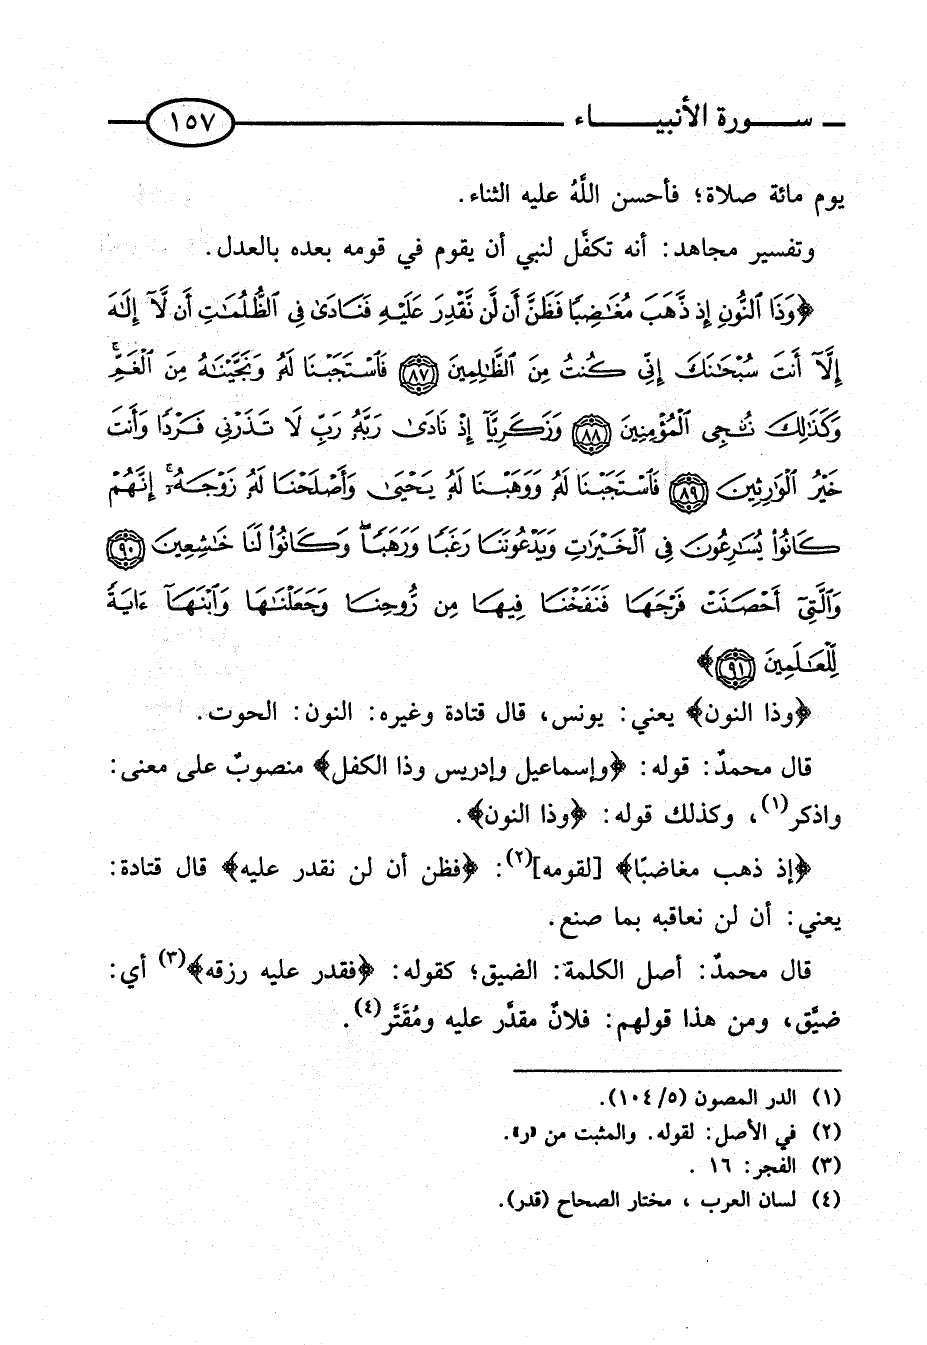 ـ سـورة الأنبيـاء ـ ١٥٧
يوم مائة صلاة؛ فأحسن اللَّهُ عليه الثناء.
وتفسير مجاهد: أنه تكفَّل لنبي أن يقوم في قومه بعده بالعدل.
﴿وَذَا ٱلنُّونِ إِذ ذَّهَبَ مُغَٰضِبًا فَظَنَّ أَن لَّن نَّقْدِرَ عَلَيْهِ فَنَادَىٰ فِى ٱلظُّلُمَٰتِ أَن لَّآ إِلَٰهَ
إِلَّآ أَنتَ سُبْحَٰنَكَ إِنِّى كُنتُ مِنَ ٱلظَّٰلِمِينَ ٨٧ فَٱسْتَجَبْنَا لَهُۥ وَنَجَّيْنَٰهُ مِنَ ٱلْغَمِّ ۚ
وَكَذَٰلِكَ نُۨجِى ٱلْمُؤْمِنِينَ ٨٨ وَزَكَرِيَّآ إِذْ نَادَىٰ رَبَّهُۥ رَبِّ لَا تَذَرْنِى فَرْدًا وَأَنتَ
خَيْرُ ٱلْوَٰرِثِينَ ٨٩ فَٱسْتَجَبْنَا لَهُۥ وَوَهَبْنَا لَهُۥ يَحْيَىٰ وَأَصْلَحْنَا لَهُۥ زَوْجَهُۥٓ ۚ إِنَّهُمْ
كَانُوا۟ يُسَٰرِعُونَ فِى ٱلْخَيْرَٰتِ وَيَدْعُونَنَا رَغَبًا وَرَهَبًا ۖ وَكَانُوا۟ لَنَا خَٰشِعِينَ ٩٠
وَٱلَّتِىٓ أَحْصَنَتْ فَرْجَهَا فَنَفَخْنَا فِيهَا مِن رُّوحِنَا وَجَعَلْنَٰهَا وَٱبْنَهَآ ءَايَةً
لِّلْعَٰلَمِينَ ٩١﴾
﴿وذا النون﴾ يعني: يونس، قال قتادة وغيره: النون: الحوت.
قال محمدٌ: قوله: ﴿وإسماعيل وإدريس وذا الكفل﴾ منصوبٌ على معنى:
واذكر(١)، وكذلك قوله: ﴿وذا النون﴾.
﴿إذ ذهب مغاضبًا﴾ [لقومه](٢): ﴿فظن أن لن نقدر عليه﴾ قال قتادة:
يعني: أن لن نعاقبه بما صنع.
قال محمدٌ: أصل الكلمة: الضيق؛ كقوله: ﴿فقدر عليه رزقه﴾(٣) أي:
ضيَّق، ومن هذا قولهم: فلانٌ مقدَّر عليه ومُقَتَّر(٤).
(١) الدر المصون (٥/ ١٠٤).
(٢) في الأصل: لقوله. والمثبت من «ر».
(٣) الفجر: ١٦ .
(٤) لسان العرب ، مختار الصحاح (قدر).